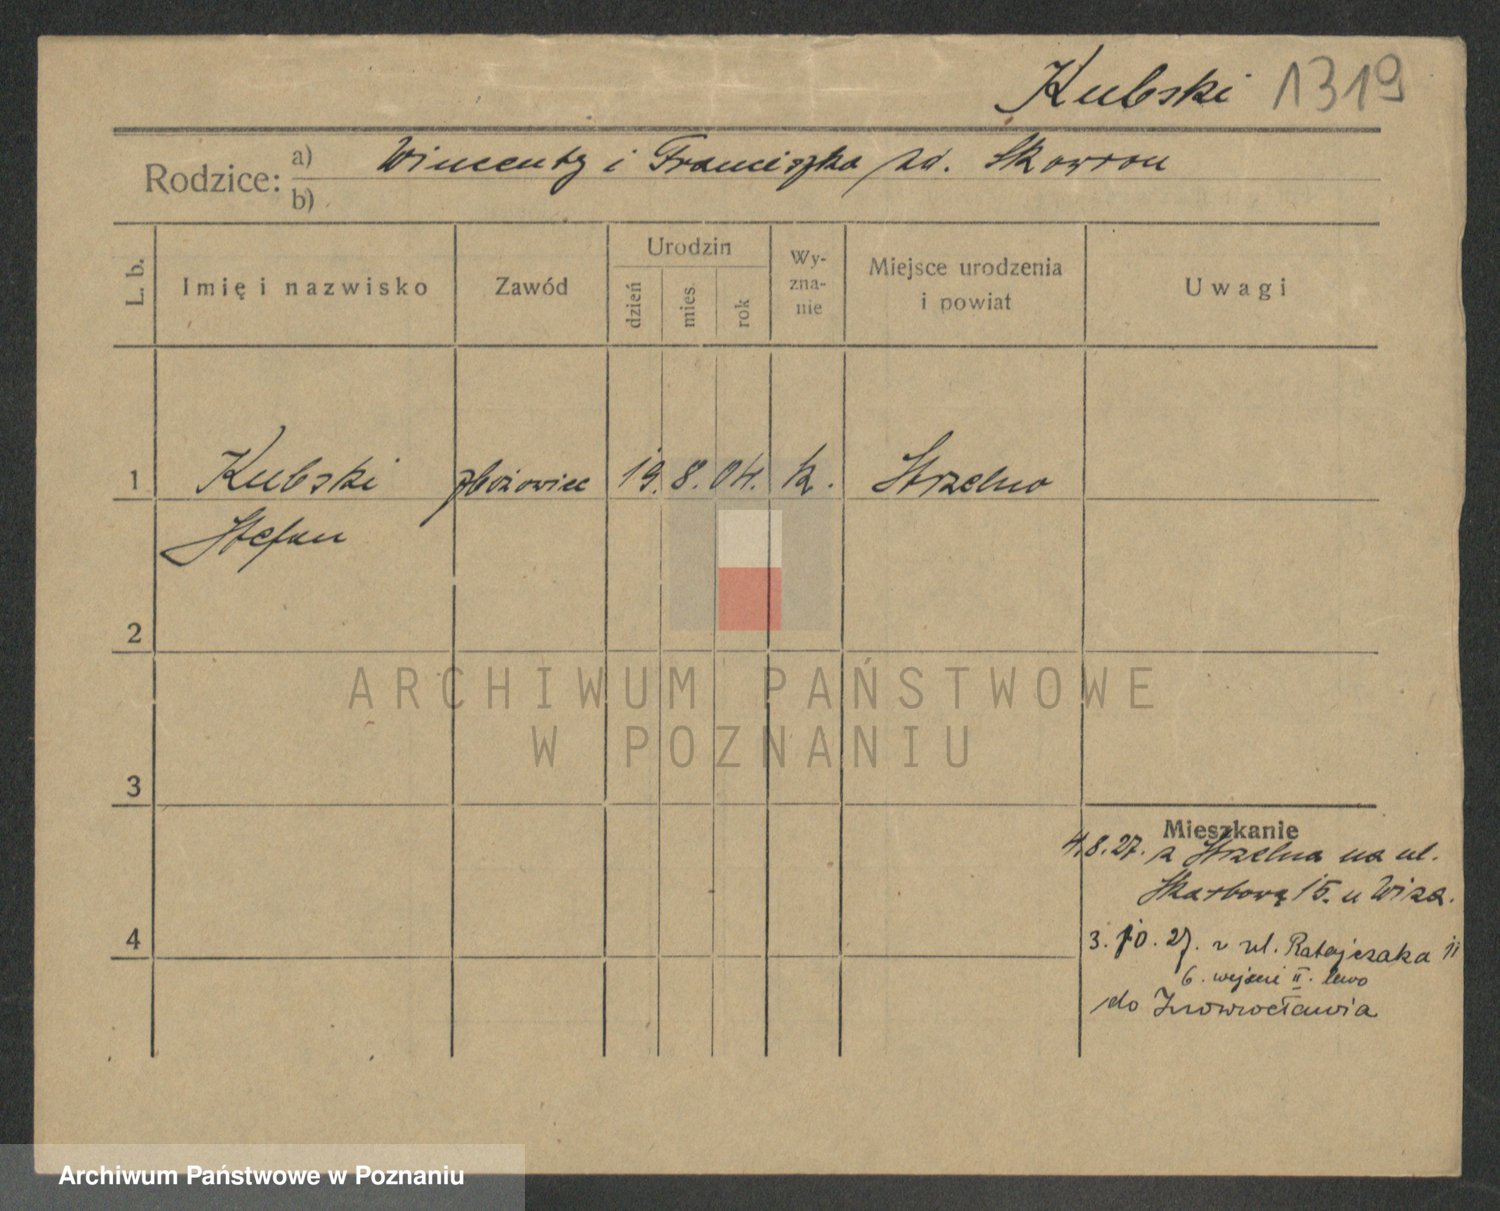 Kubski 1319
Rodzice: a) Wincenty i Franciszka zd. Skowron
b)
L. b.
Imię i nazwisko
Zawód
Urodzin
dzień
mies.
rok
Wy-
zna-
nie
Miejsce urodzenia
i powiat
Uwagi
1 Kubski zbożowiec 19. 8. 04. k. Strzelno
Stefan
2
ARCHIWUM PAŃSTWOWE
W POZNANIU
3
Mieszkanie
4.8.27. z Strzelna na ul.
Skarbową 15. u Wiza.
4
3. 10. 27. z ul. Ratajczaka 11
6. wejście II. lewo
do Inowrocławia
Archiwum Państwowe w Poznaniu